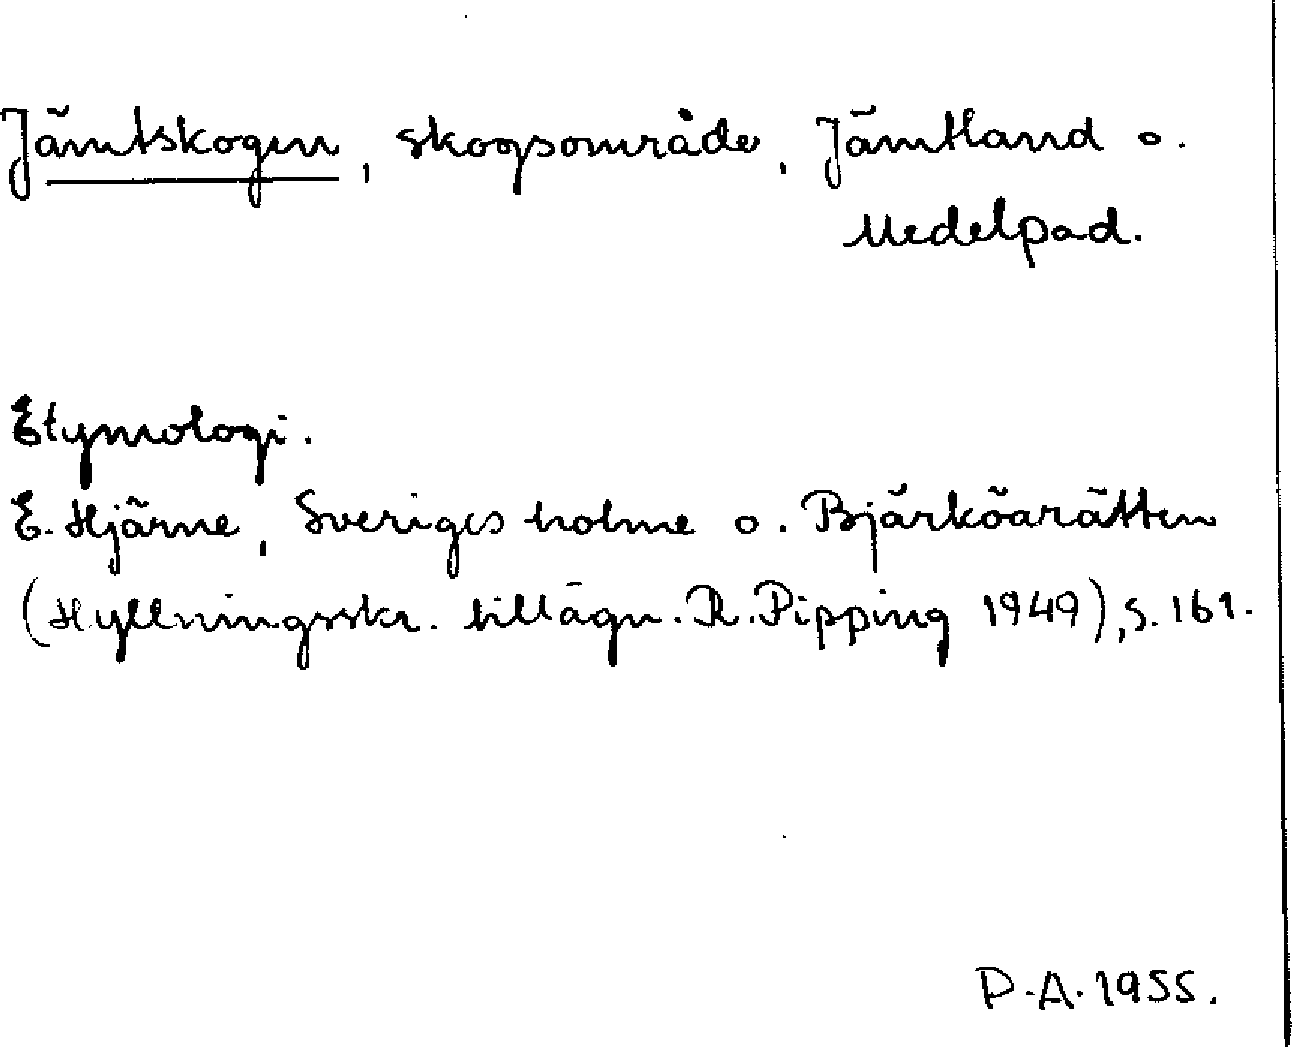 Jämtskogen, skogsområde, Jämtland o.
Medelpad.
Etymologi.
E. Hjärne, Sveriges holme o. Bjärköarätten
(Hyllningsskr. tillägn. R. Pipping 1949), s. 161.
P.A. 1955.